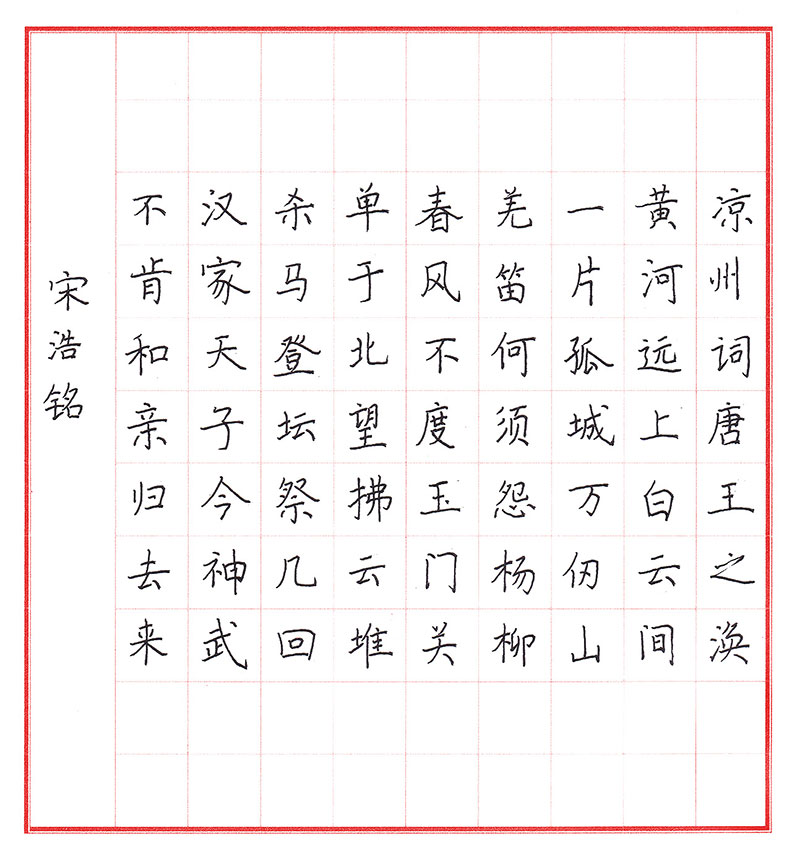 凉州词唐王之涣
黄河远上白云间
一片孤城万仞山
羌笛何须怨杨柳
春风不度玉门关
单于北望拂云堆
杀马登坛祭几回
汉家天子今神武
不肯和亲归去来
宋浩铭